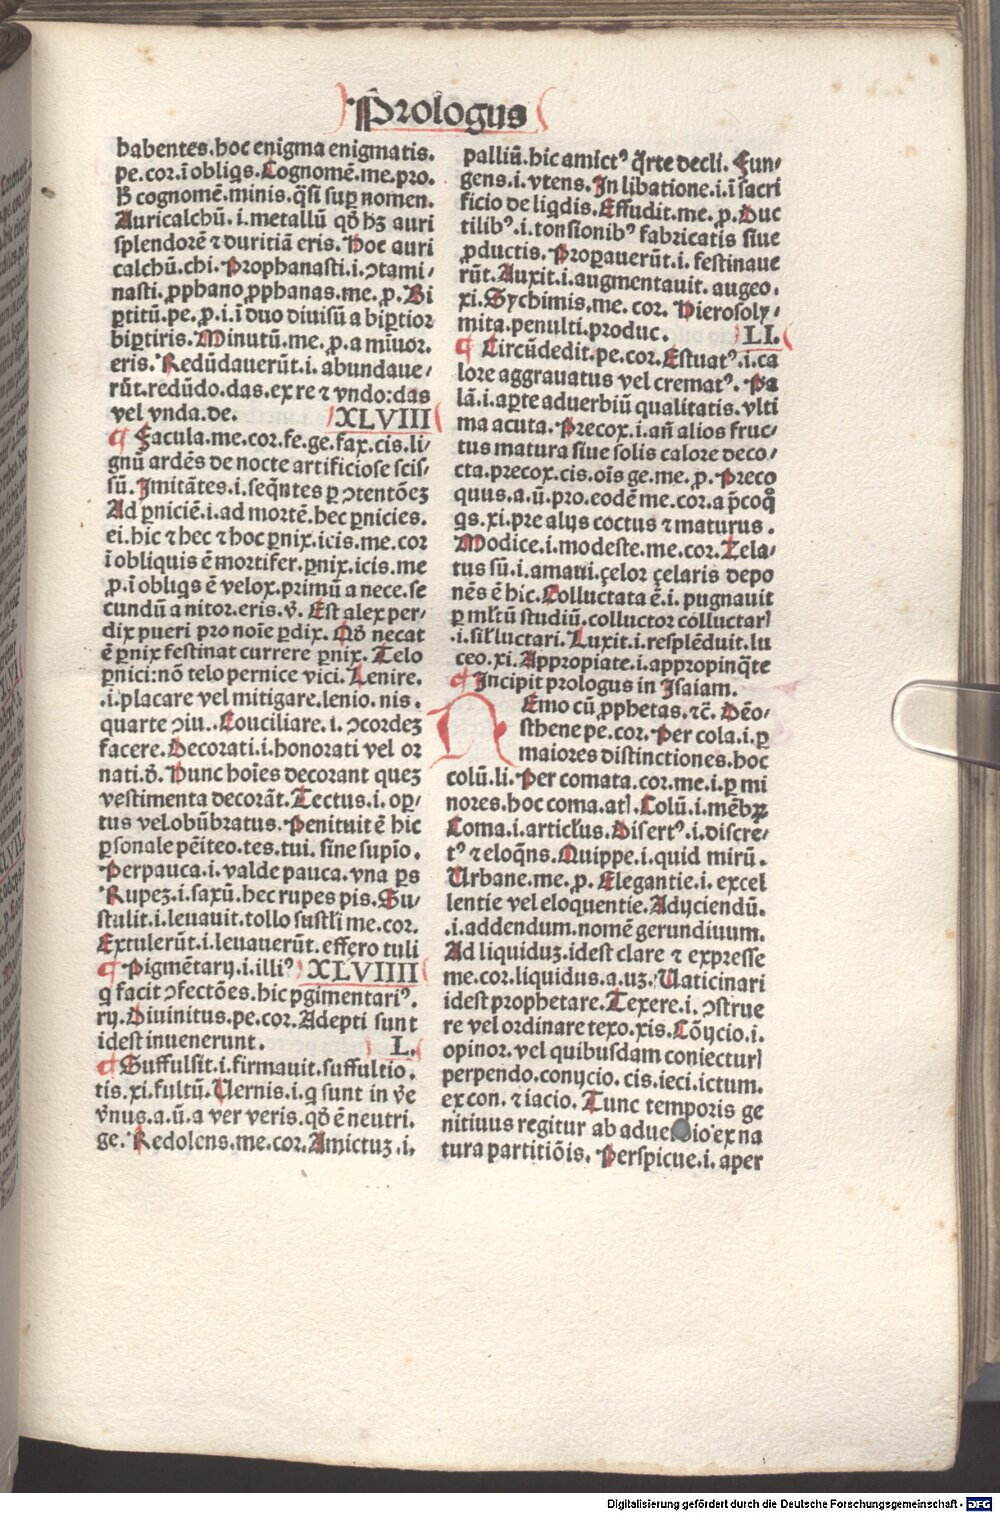 Prologus
habentes.hoc enigma enigmatis.
pe.cor.ī obliqs.Cognomē.me.pro.
ꝶ cognomē.minis.q̄si suꝑ nomen.
Auricalchū.i.metallū qđ hꝫ auri
splendorē ⁊ duritiā eris.Hoc auri
calchū.chi.Prophanasti.i.ↄtami/
nasti.ꝓphano ꝓphanas.me.ꝓ.Bi
ꝑtitū.pe.ꝓ.i.ī duo diuisū a biꝑtior
biꝑtiris.Minutū.me.ꝓ.a minuor.
eris.Redūdauerūt.i.abundaue/
rūt.redūdo.das.ex re ⁊ vndo:das
vel vnda.de. XLVIII
¶ Facula.me.cor.fe.ge.fax.cis.li/
gnū ardēs de nocte artificiose scis/
sū.Imitātes.i.seqn̄tes ꝑ ↄtentōeꝫ
Ad ꝑniciē.i.ad mortē.hec ꝑnicies.
ei.hic ⁊ hec ⁊ hoc ꝑnix.icis.me.cor
ī obliquis ē mortifer.ꝑnix.icis.me
ꝓ.ī obliqs ē velox.primū a nece.se
cundū a nitor.eris.v̄. Est alex per/
dix pueri pro noīe ꝑdix. Qđ necat
ē ꝑnix festinat currere ꝑnix. Telo
ꝑnici:nō telo pernice vici.Lenire.
.i.placare vel mitigare.lenio.nis.
quarte ↄiu..Conciliare.i.ↄcordeꝫ
facere.Decorati.i.honorati vel or
nati.v̄.Hunc hoīes decorant queꝫ
vestimenta decorāt.Tectus.i.oꝑ/
tus vel obūbratus.Penituit ē hic
ꝑsonale pēiteo.tes.tui.sine supīo.
Perpauca.i.valde pauca.vna ꝑs
Rupeꝫ.i.saxū.hec rupes pis.Su/
stulit.i.leuauit.tollo sustli me.cor.
Extulerūt.i.leuauerūt.effero tuli
¶ Pigmētarij.i.illiꝰ XLVIIII
q̄ facit ↄfectōes.hic pgimentariꝰ.
rij.Diuinitus.pe.cor.Adepti sunt
idest inuenerunt. L.
¶ Suffulsit.i.firmauit.suffultio.
tis.xi.fultū.Uernis.i.q sunt in v̄e
v̄nus.a.ū.a ver veris.qđ ē neutri.
ge.Redolens.me.cor.Amictuꝫ.i.
palliū.hic amictꝰ q̄rte decli. Fun/
gens.i.vtens.In libatione.i.ī sacri
ficio de liqdis.Effudit.me.ꝓ.Duc
tilibꝰ.i.tonsionibꝰ fabricatis siue
ꝓductis.Proꝑauerūt.i.festinaue
rūt.Auxit.i.augmentauit.augeo.
xi.Sychimis.me.cor.Hierosoly/
mita.penulti.produc. LI.
¶ Circūdedit.pe.cor.Estuatꝰ.i.ca
lore aggrauatus vel crematꝰ.Pa
lā.i.aꝑte aduerbiū qualitatis.vlti
ma acuta.Precox.i.añ alios fruc/
tus matura siue solis calore deco/
cta.precox.cis.oīs ge.me.ꝓ.Preco
quus.a.ū.pro.eodē me.cor.a p̄coq̄
qs.xi.pre alijs coctus ⁊ maturus.
Modice.i.modeste.me.cor.Zela/
tus sū.i.amaui.çelor çelaris depo
nēs ē hic.Colluctata ē.i.pugnauit
ꝑ ml̄tū studiū.colluctor colluctarꝭ
.i.sil̄luctari.Luxit.i.resplēduit.lu
ceo.xi.Appropiate.i.appropinq̄te
¶ Incipit prologus in Isaiam.
NEmo cū ꝓphetas.⁊c̄. Dēo/
sthene pe.cor.Per cola.i.ꝑ
maiores distinctiones.hoc
colū.li.Per comata.cor.me.i.ꝑ mi
nores.hoc coma.atꝭ.Colū.i.mēbꝝ
Coma.i.articl̄us.Disertꝰ.i.discre/
tꝰ ⁊ eloqn̄s.Quippe.i.quid mirū.
Urbane.me.ꝓ.Elegantie.i.excel
lentie vel eloquentie.Adijciendū.
.i.addendum.nomē gerundiuum.
Ad liquiduꝫ.idest clare ⁊ expresse
me.cor.liquidus.a.uꝫ.Uaticinari
idest prophetare.Texere.i.ↄstrue
re vel ordinare texo.xis.Cōijcio.i.
opinor.vel quibusdam coniecturꝭ
perpendo.conijcio.cis.ieci.ictum.
ex con.⁊ iacio.Tunc temporis ge
nitiuus regitur ab adue io ex na
tura partitiōis.Perspicue.i.aper
Digitalisierung gefördert durch die Deutsche Forschungsgemeinschaft - DFG